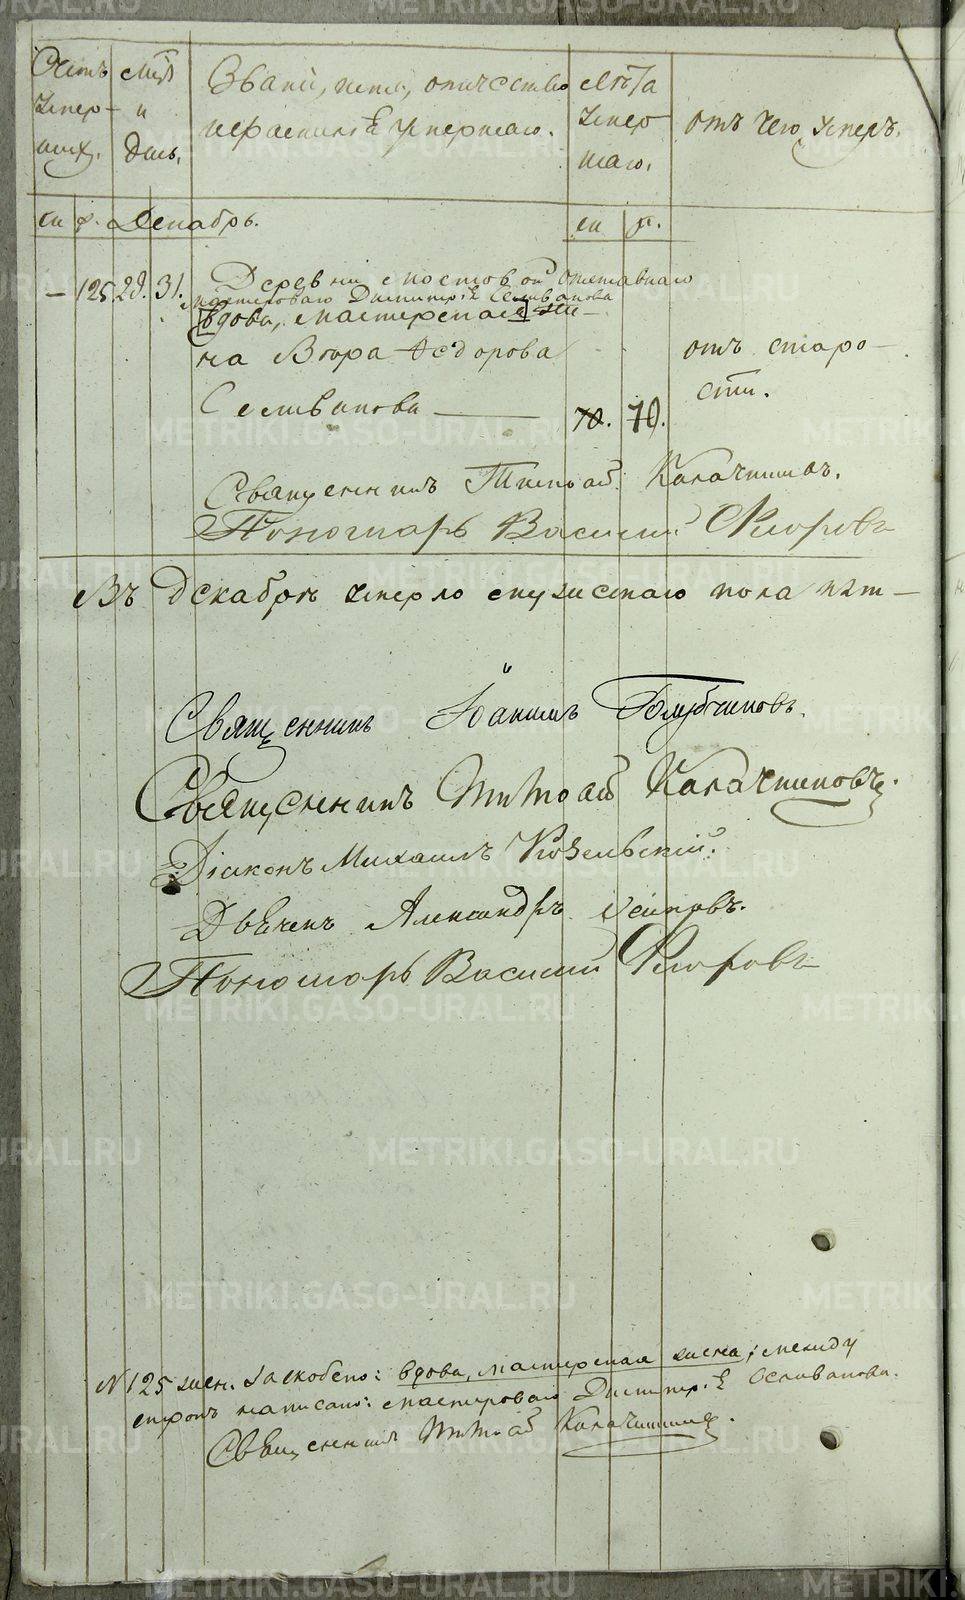 Счетъ умер- шихъ.
м-цъ и день.
Званiе, имя, отчество
и фамилiя умершаго.
Лѣта умер- шаго.
отъ чего умеръ.
м ж. Декабрь.
м ж.
– 125 28. 31. Деревни мостовой отставнаго
мастероваго Димитрiя Селиванова
вдова, мастерская же-
на Вѣра Федорова
Селиванова 70. 70.
отъ старо-
сти.
Священникъ Тимофей Калачниковъ.
Пономарь Василий Флоровъ
Въ Декабрѣ умерло мужескаго пола пят-
Священникъ Iоаннъ Голубчиковъ.
Священникъ Тимофей Калачниковъ.
Дiаконъ Михаилъ Козельскiй.
Дьячекъ Александръ Осиповъ.
Пономарь Василий Флоровъ
№ 125 жен. заскоблено: вдова, мастерская жена; между
строкъ написано: мастероваго Димитрiя Селиванова.
Священникъ Тимофей Калачниковъ.
METRIKI.GASO-URAL.RU